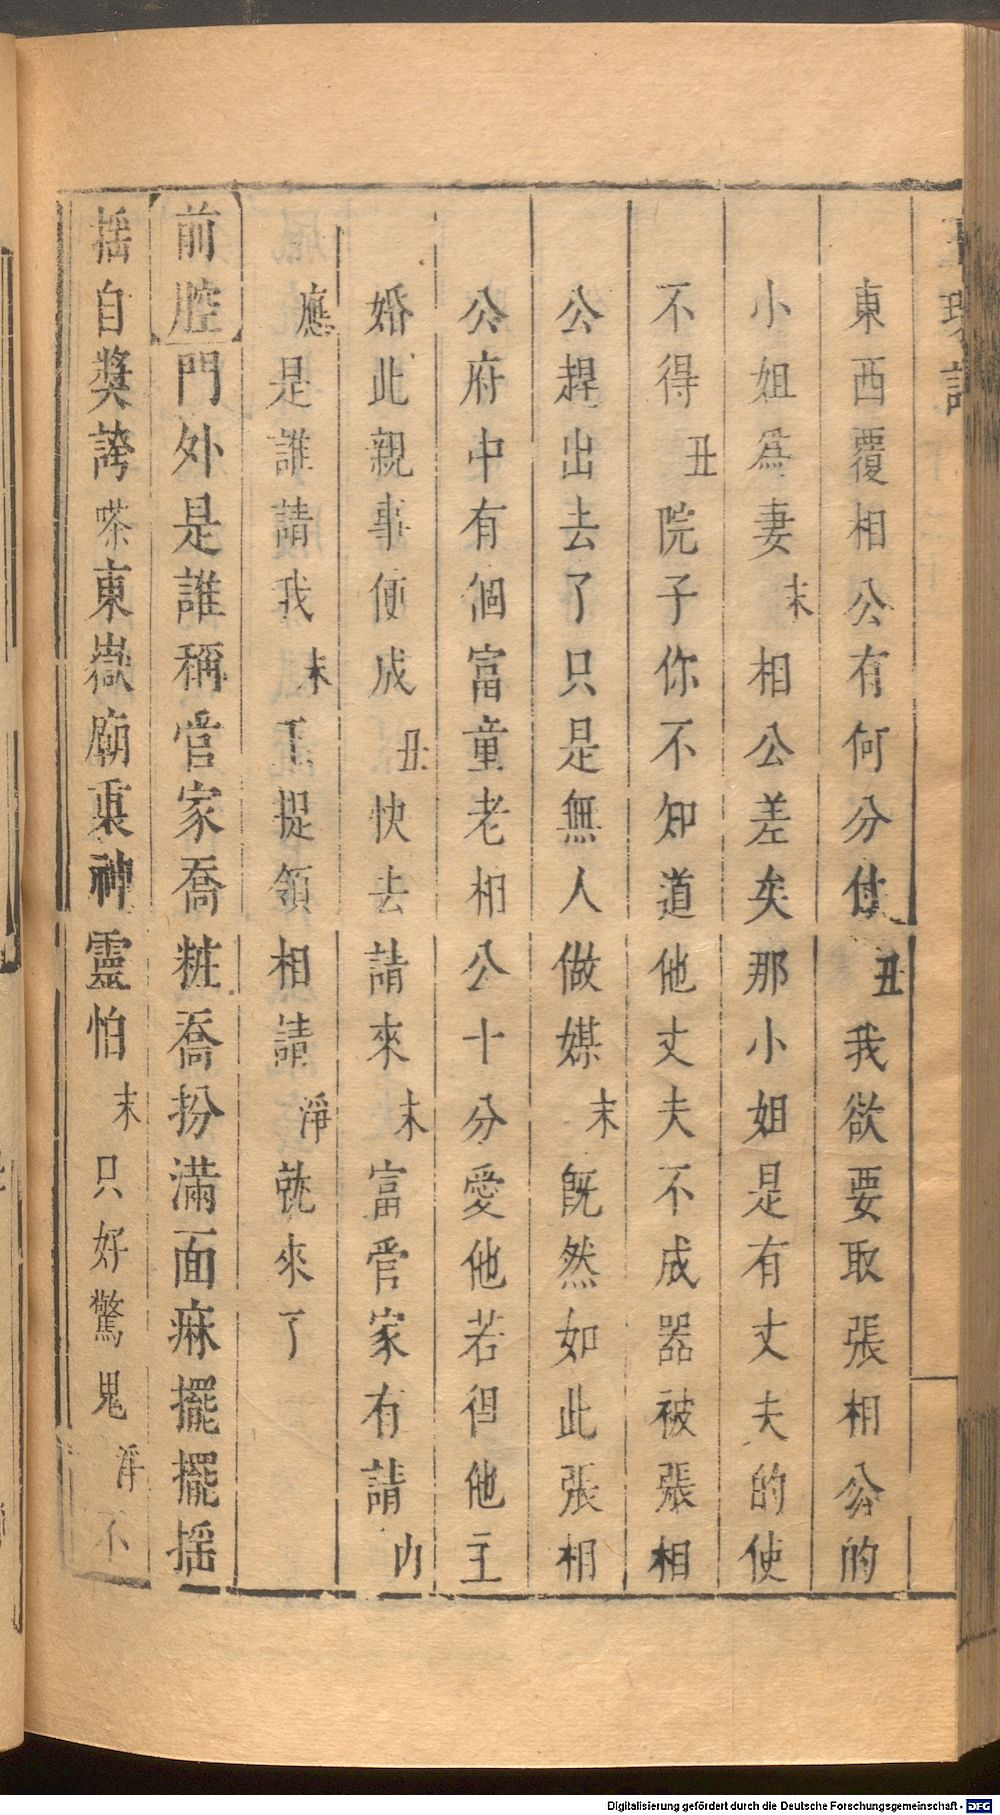 東西覆相公有何分付丑我欲要取張相公的
小姐爲妻末相公差矣那小姐是有丈夫的使
不得丑院子你不知道他丈夫不成器被張相
公趕出去了只是無人做媒末旣然如此張相
公府中有個富童老相公十分愛他若得他主
婚此親事便成丑快去請來末富官家有請內
應是誰請我末王提領相請淨就來了
前腔門外是誰稱官家喬粧喬扮滿面麻擺擺揺
揺自奬誇嗏東嶽廟裏神靈怕末只好驚鬼淨不
Digitalisierung gefördert durch die Deutsche Forschungsgemeinschaft - DFG